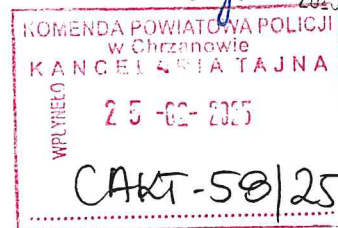 KOMENDA POWIATOWA POLICJI
w Chrzanowie
KANCELARIA TAJNA
WPŁYNĘŁO
25 -02- 2025
CAKT-58/25